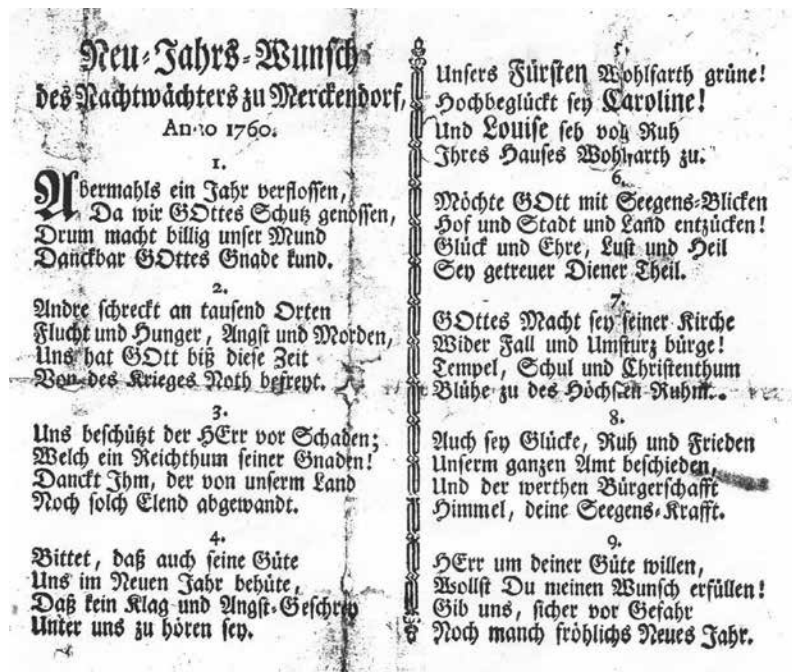 Neu-Jahrs-Wunsch
des Nachtwächters zu Merckendorf,
Anno 1760.
1.
Abermahls ein Jahr verflossen,
Da wir GOttes Schutz genossen,
Drum macht billig unser Mund
Danckbar GOttes Gnade kund.
2.
Andre schreckt an tausend Orten
Flucht und Hunger, Angst und Morden,
Uns hat GOtt biß diese Zeit
Von des Krieges Noth befreyt.
3.
Uns beschützt der HErr vor Schaden;
Welch ein Reichthum seiner Gnaden!
Danckt Ihm, der von unserm Land
Noch solch Elend abgewandt.
4.
Bittet, daß auch seine Güte
Uns im Neuen Jahr behüte,
Daß kein Klag und Angst-Geschrey
Unter uns zu hören sey.
5.
Unsers Fürsten Wohlfarth grüne!
Hochbeglückt sey Caroline!
Und Louise seh voll Ruh
Ihres Hauses Wohlfarth zu.
6.
Möchte GOtt mit Seegens-Blicken
Hof und Stadt und Land entzücken!
Glück und Ehre, Lust und Heil
Sey getreuer Diener Theil.
7.
GOttes Macht sey seiner Kirche
Wider Fall und Umsturz bürge!
Tempel, Schul und Christenthum
Blühe zu des Höchsten Ruhm.
8.
Auch sey Glücke, Ruh und Frieden
Unserm ganzen Amt beschieden,
Und der werthen Bürgerschafft
Himmel, deine Seegens-Krafft.
9.
HErr um deiner Güte willen,
Wollst Du meinen Wunsch erfüllen!
Gib uns, sicher vor Gefahr
Noch manch fröhlichs Neues Jahr.